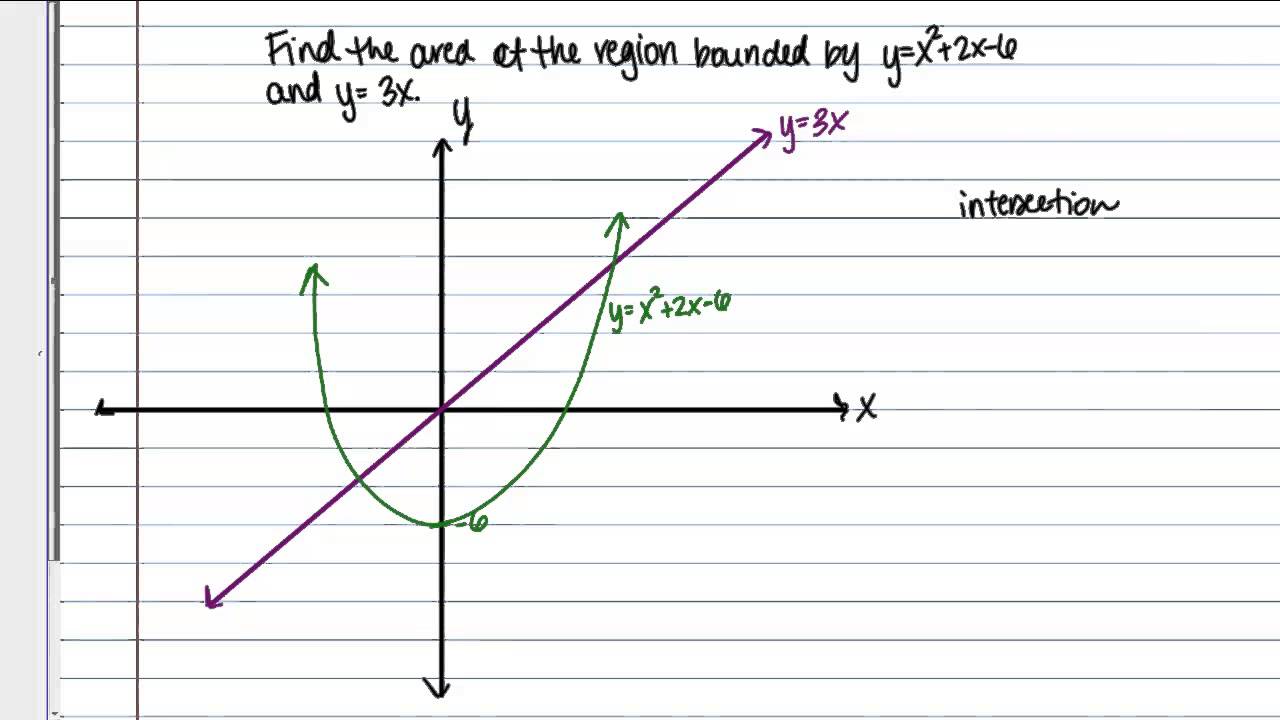 Find the area of the region bounded by y=x²+2x-6
and y= 3x.
y
y=3x
intersection
y=x²+2x-6
x
-6